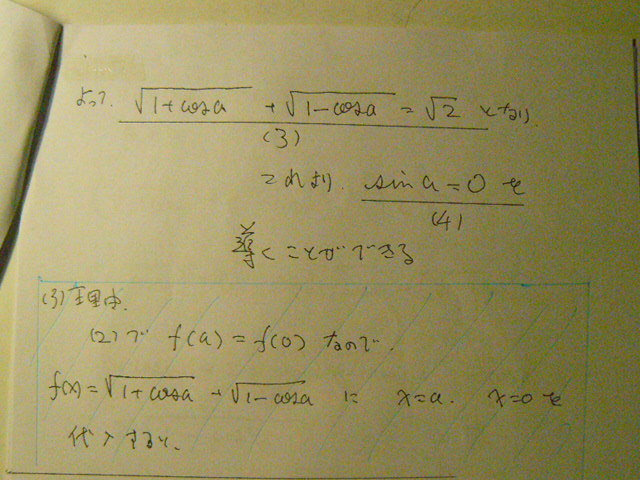 よって. √1+cosa + √1-cosa = √2 となり.
(3)
これより. sina=0 を
(4)
導くことができる
(3)理由.
(2)で f(a)=f(0) なので.
f(x)=√1+cosa + √1-cosa に x=a. x=0を
代入すると.